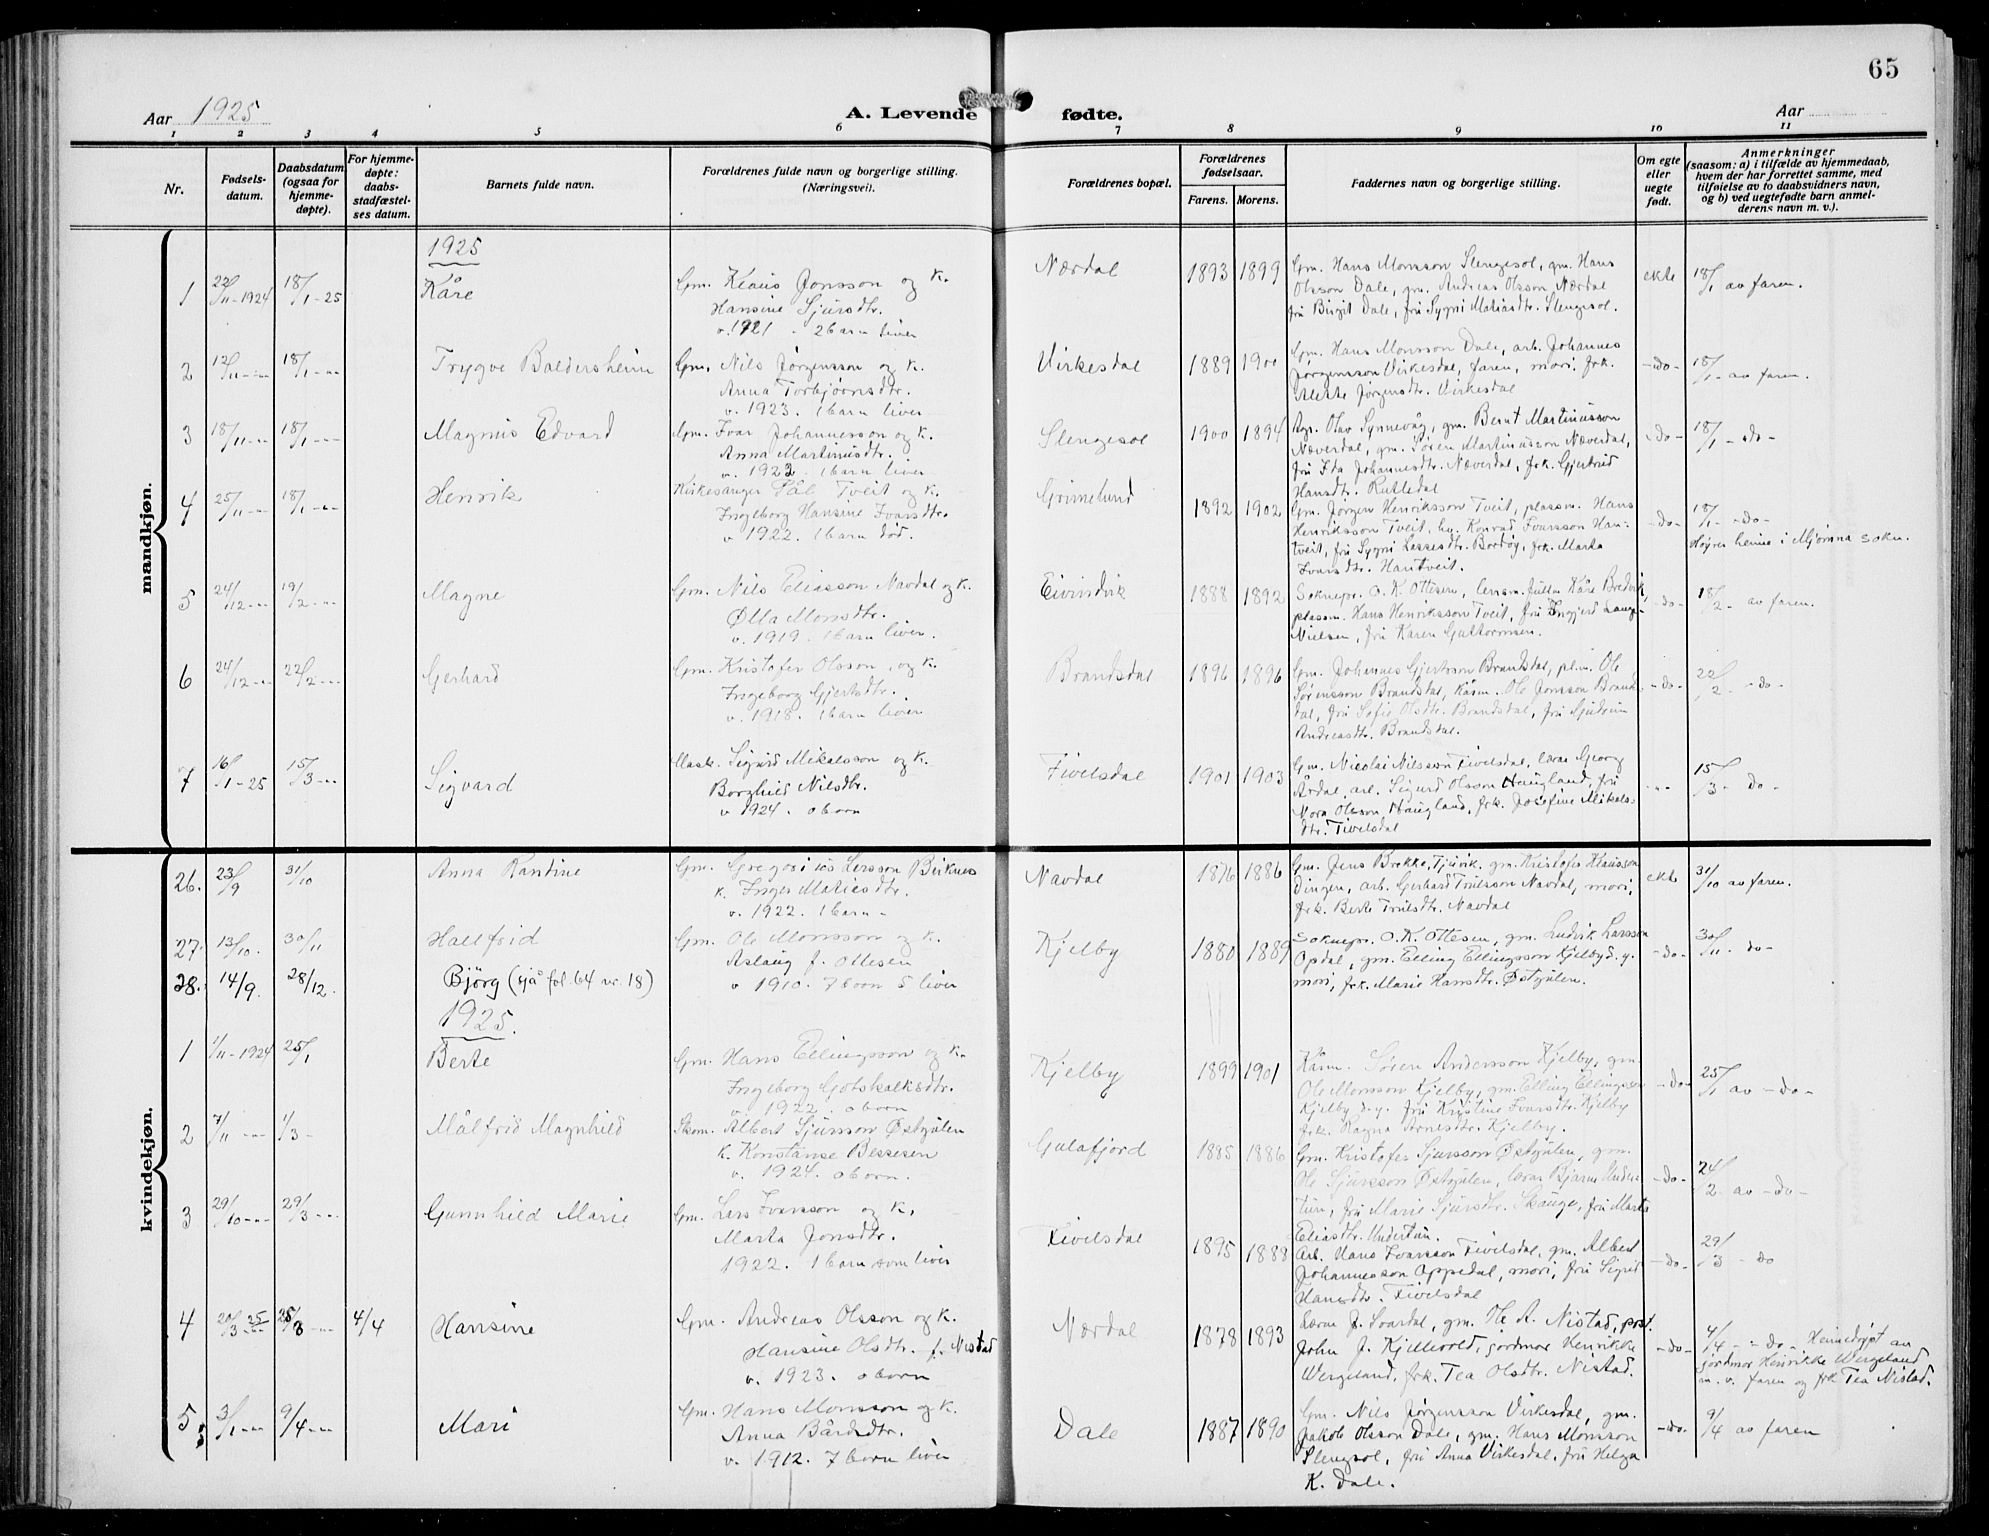 65
Aar 1925
A. Levende fødte.
Aar
1 2 3 4 5 6 7 8 9 10 11
Nr.
Fødsels-
datum.
Daabsdatum
(ogsaa for
hjemme-
døpte).
For hjemme-
døpte:
daabs-
stadfæstel-
ses datum.
Barnets fulde navn.
Forældrenes fulde navn og borgerlige stilling.
(Næringsvei).
Forældrenes bopæl.
Forældrenes
fødselsaar.
Farens. Morens.
Faddernes navn og borgerlige stilling.
Om egte
eller
uegte
født.
Anmerkninger
(saasom: a) i tilfælde av hjemmedaab,
hvem der har forrettet samme, med
tilføielse av to daabsvidners navn,
og b) ved uegtefødte barn anmel-
derens navn m. v.).
mandkjøn.
1925
1 22/11-1924 18/1-25 Kåre
Gm. Klaus Jonsson og k.
Hansine Sjursdtr.
v. 1921. 2 barn liver
Nærdal 1893 1899
Gm. Hans Monsson Slengesol, gm. Hans
Olsson Dale, gm. Andreas Olsson Nærdal
fru Birgit Dale, fru Sygni Matiasdtr. Slengesol.
ekte 18/1 av faren.
2 12/11 -"- 18/1 -"- Trygve Baldersheim
Gm. Nils Jørgensson og k.
Anna Torbjørnsdtr.
v. 1923. 1 barn liver
Virkesdal 1889 1900
Gm. Hans Monsson Dale, arb. Johannes
Jørgensson Virkesdal, faren, mori, frk.
Jørgensdtr. Virkesdal
-do- 18/1 - av faren.
3 18/11 -"- 18/1 -"- Magnus Edvard
Gm. Ivar Johannesson og k.
Anna Martinusdtr.
v. 1923. 1 barn liver
Slengesol 1900 1894
Olav Synnevåg, gm. Bernt Martinusson
Næverdal, gm. Søren Martinusson Næverdal,
fru Ida Johannesdtr. Næverdal, frk. Gjertrud
Hansdtr. Rutledal
-do- 18/1 - -do-
4 25/11 -"- 18/1 -"- Henrik
Kirkesanger Pål Tveit og k.
Ingeborg Hansine Ivarsdtr.
v. 1922. 1 barn död.
Grinelund 1892 1902
Gm. Jørgen Henriksson Tveit, plassm. Hans
Henriksson Tveit, Konrad Ivarsson Han-
tveit, fru Sygni Lassesdtr. Bordøy, frk. Marta
Ivarsdtr. Hantveit.
-do- 18/1 - -do-
Høyrer heime i Mjömna sokn.
5 24/12 -"- 19/2 -"- Magne
Gm. Nils Eliasson Navdal og k.
Olla Monsdtr.
v. 1919. 1 barn liver.
Eivindvik 1888 1892
Soknepr. O. K. Ottesen, Kåre Bredvik,
plassm. Hans Henriksson Tveit, fru Ingjerd Lange-
Nielsen, fru Karen Guttormsen.
-do- 18/2 - av faren.
6 24/12 -"- 22/2 -"- Gerhard
Gm. Kristofer Olsson, og k.
Ingeborg Gjertsdtr.
v. 1918. 1 barn liver
Brandsdal 1896 1896
Gm. Johannes Gjertsson Brandsdal, Ole
Sørensson Brandsdal, kårm. Ole Jonsson Brands-
dal, fru Sofie Olsdtr. Brandsdal, fru
Andreasdtr. Brandsdal.
-do- 22/2 - -do-
7 16/1-25 15/3 -"- Sigvard
Mask. Sigurd Mikalsson og k.
Borghild Nilsdtr.
v 1924. 0 born
Tivelsdal 1901 1903
Gm. Nicolai Nilsson Tivelsdal, lærar Georg
Årdal, arb. Sigurd Olsson Haugland, fru
Nora Olsson Haugland, frk. Josefine Mikals-
dtr. Tivelsdal
-"- 15/3 - do -
kvindekjøn.
26. 23/9 31/10 Anna Kantine
Gm. Gregorius Lersson Birknes
k. Inger Matiesdtr.
v. 1922. 1 barn -
Navdal 1876 1886
Gm. Jens Brekke, Tjuvik, gm. Kristofer Klausson
Dingen, arb. Gerhard Trulsson Navdal, mori,
frk. Berte Trulsdtr. Navdal
ekte 31/10 av faren.
27. 13/10. 30/11 Hallfrid
Gm. Ole Monsson og k.
Aslaug f. Ottesen
v 1910. 7 born 5 liver
Kjelby 1880 1889
Soknepr. O. K. Ottesen, gm. Ludvik Larsson
Opdal, gm. Elling Ellingsson Kjelby d. y.
mori, frk. Marie Hansdtr. Østgulen.
-do- 30/11 - do -
28. 14/9. 28/12. Björg (sjå fol. 64 nr. 18)
1925.
1 1/11-1924 25/1 Berte
Gm. Hans Ellingsson og k.
Ingeborg Gotskalksdtr.
v. 1922. 0 born
Kjelby 1899 1901
Kårm. Søren Andersson Kjelby, gm.
Ole Monsson Kjelby, gm. Elling Ellingsson
Kjelby d. y. fru Kristine Ivarsdtr. Kjelby
frk. Ragna Arnesdtr. Kjelby.
-do- 25/1 av -do-
2 7/11 -"- 1/3 - Målfrid Magnhild
Skom. Albert Sjursson Østgulen
k. Konstanse Bessesen
v. 1924. 0 born.
Gulafjord 1885 1886
Gm. Kristofer Sjursson Østgulen, gm.
Ole Sjursson Østgulen, lærar Bjarne Under-
tun, fru Marie Sjursdtr. Skauge, fru Marta
Eliasdtr. Undertun.
-do- 24/2 - av -do-
3 29/10 -"- 29/3 -"- Gunnhild Marie
Gm. Lars Ivarsson og k.
Marta Jonsdtr.
1922. 1 barn som liver
Tivelsdal 1895 1888
Arb. Hans Ivarsson Tivelsdal, gm. Albert
Johannesson Oppedal, mori, fru Sigrid
Hansdtr. Tivelsdal
-do- 29/3 - do
4 20/3 25 25/3 -"- 4/4 Hansine
Gm. Andreas Olsson og k.
Hansine Olsdtr. f. Nistad
v. 1923. 0 born
Nærdal 1878 1893
Lærar J. Svardal, gm. Ole A. Nistad, post.
John J. Kjellevold, jordmor Henrikke
Wergeland, frk. Tea Olsdtr. Nistad.
-do- 4/4 - - do - Heimedöpt av
jordmor Henrikke Wergeland
m. v. faren og frk Tea Nistad.
5 3/1 -"- 9/4 -"- Mari
Gm. Hans Monsson og k.
Anna Bårdsdtr.
v. 1912. 7 born liver
Dale 1887 1890
Gm. Nils Jørgensson Virkesdal, gm.
Jakob Olsson Dale, gm. Hans Monsson
Slengsol, fru Anna Virkesdal, fru Helga
K. Dale.
-do- 9/4 av faren